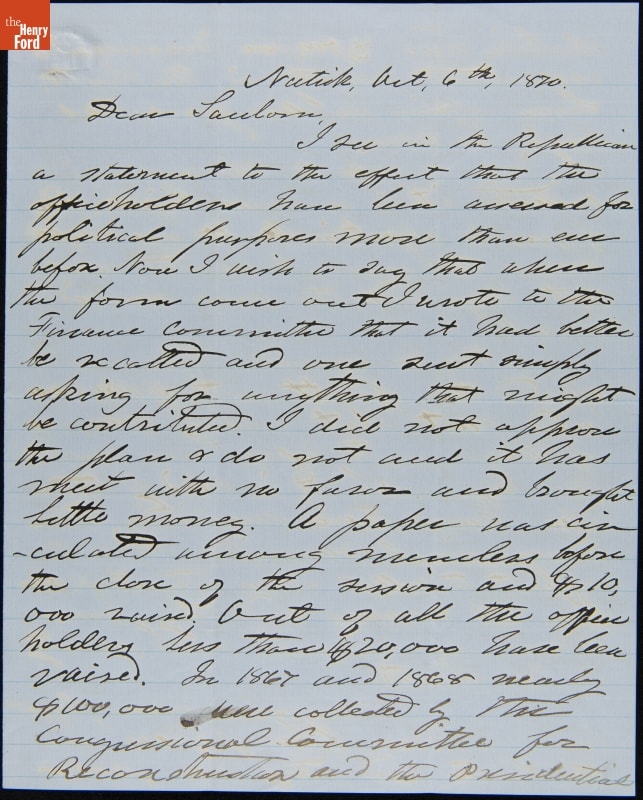 the
Henry
Ford
Natick, Oct, 6th, 1870.
Dear Sanborn,
I see in the Republican
a statement to the effect that the
officeholders have been assessed for
political purposes more than ever
before. Now I wish to say that when
the form come out I wrote to the
Finance Committee that it had better
be recalled and one sent simply
asking for anything that might
be contributed. I did not approve
the plan & do not and it has
met with no favor and brought
little money. A paper was cir
-culated among members before
the close of the session and $10,
000 raised. Out of all the office
holders less than $20,000 have been
raised. In 1867 and 1868 nearly
$100,000 were collected by the
Congressional Committee for
Reconstruction and the Presidential